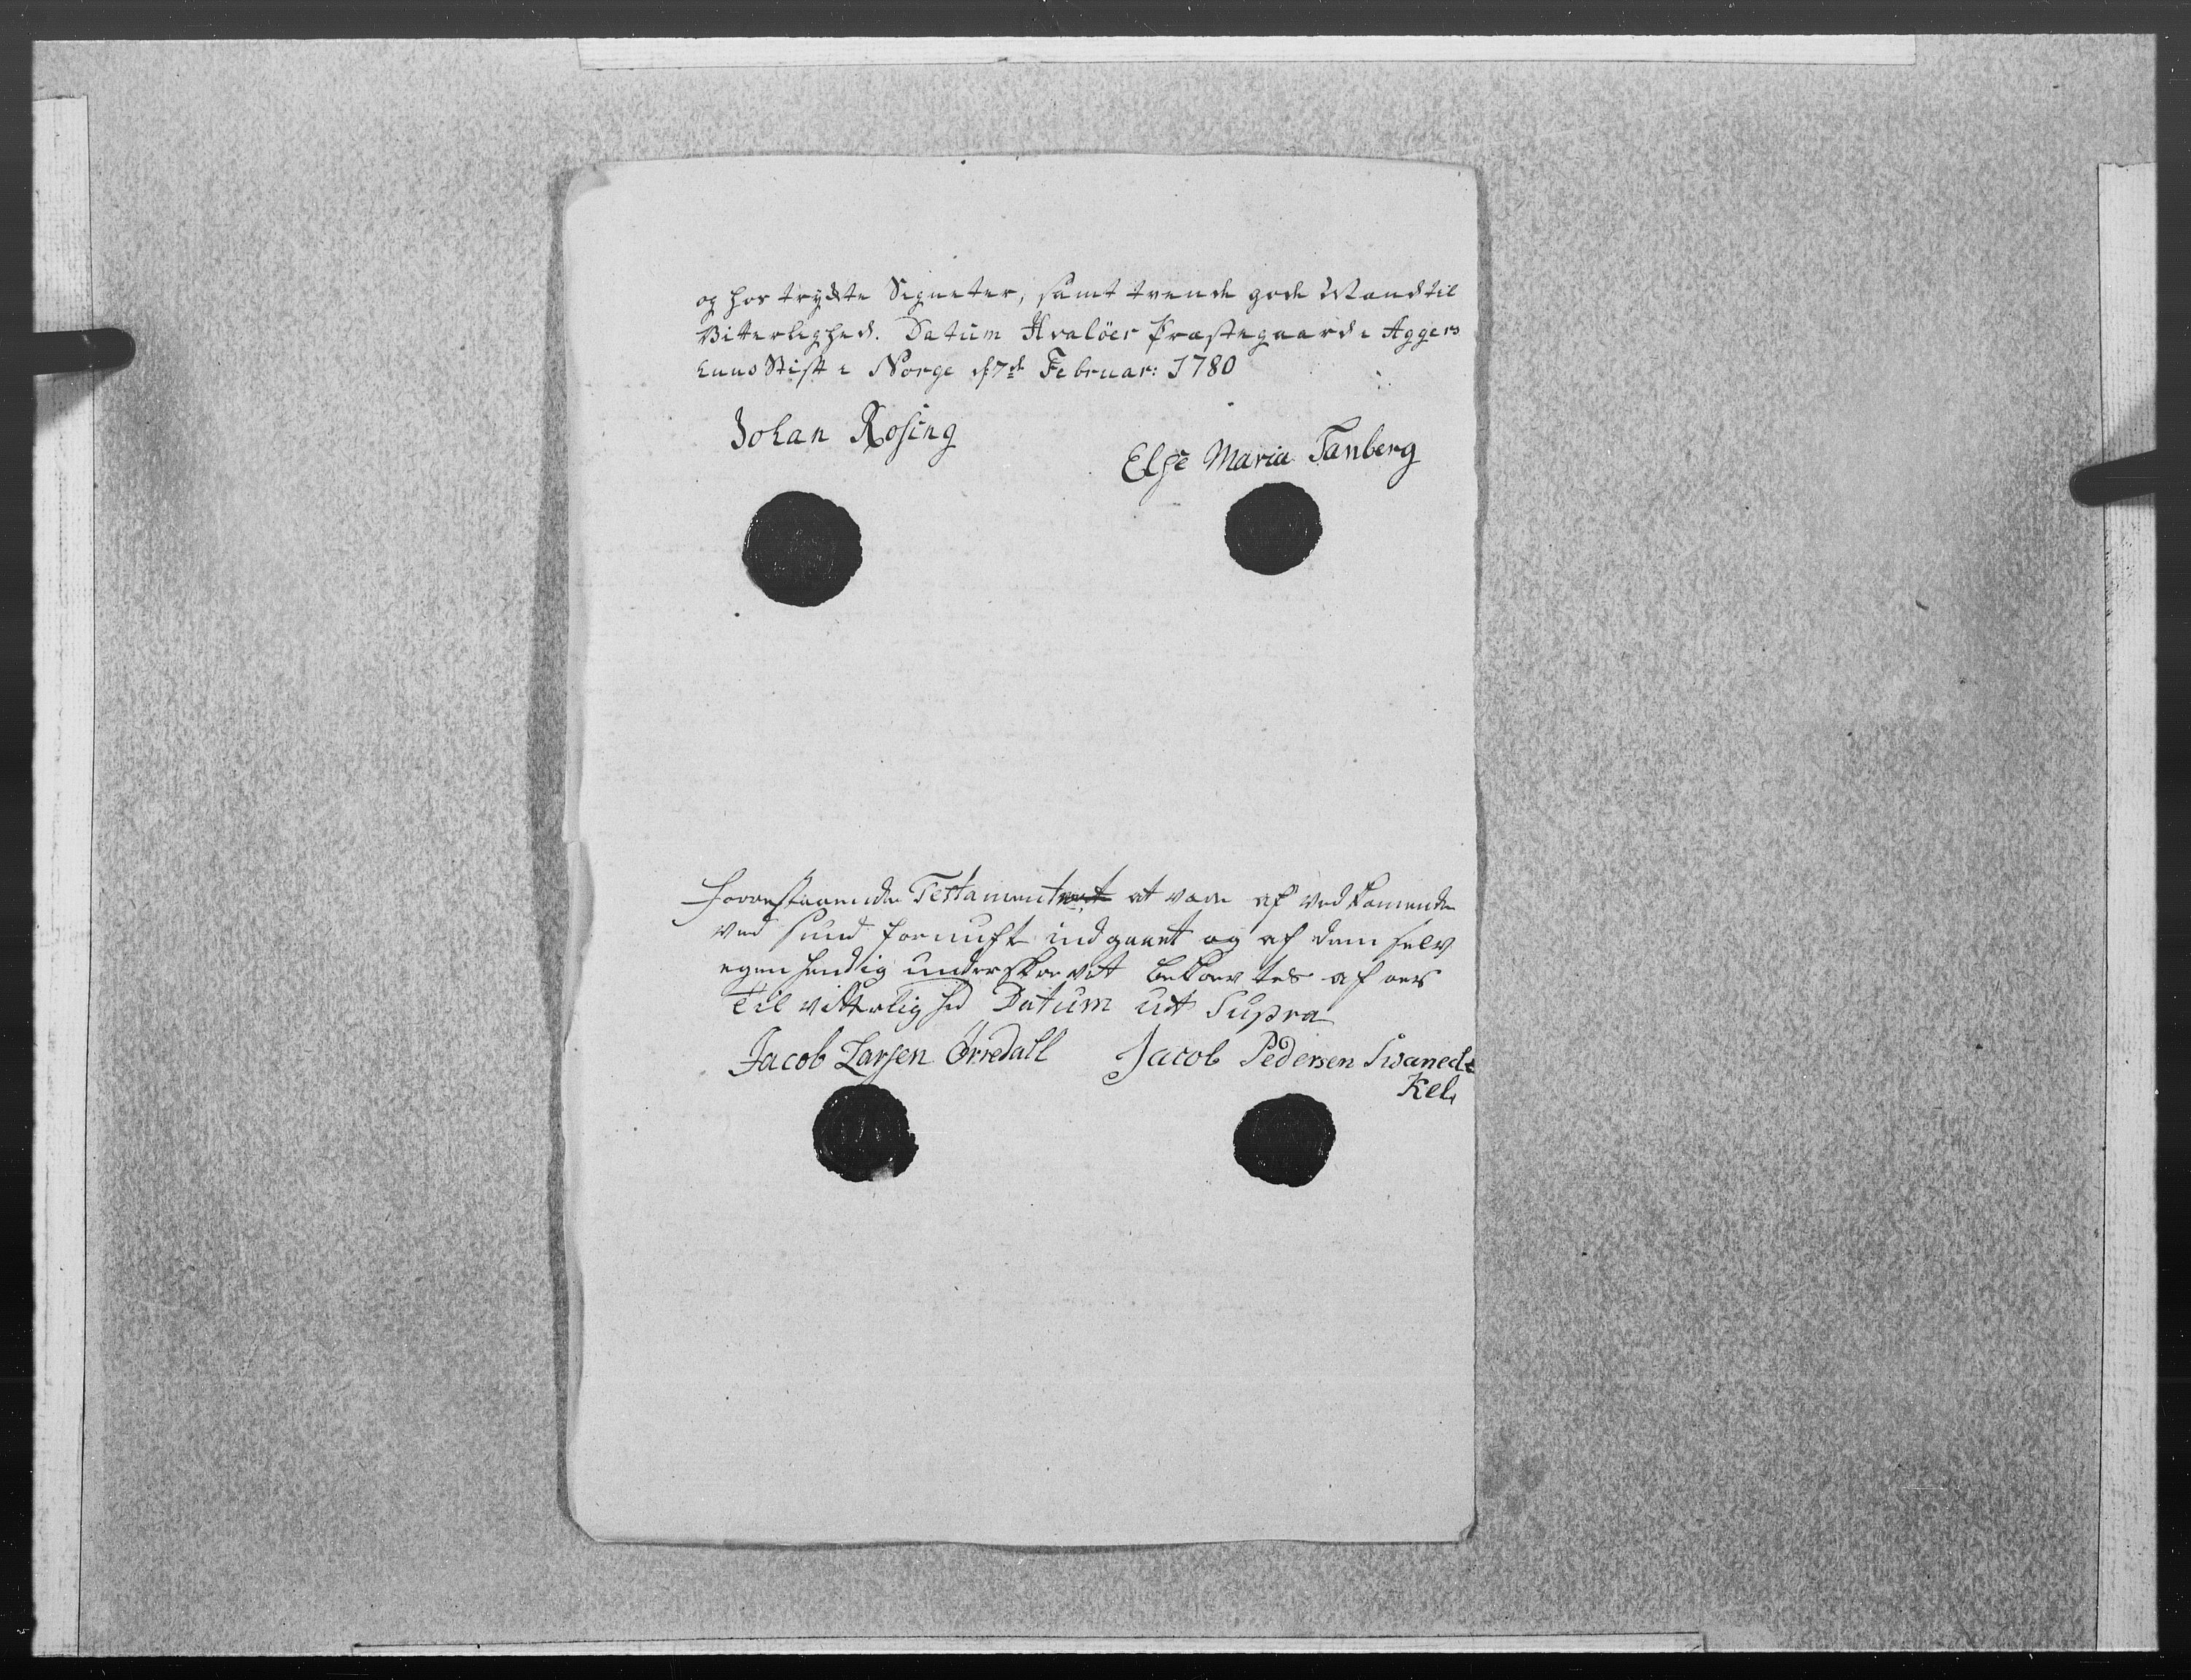 og hos trykte Signeter, samt trende gode Mænd til
Vitterlighed. Datum Hvalöer Præstegaard i Aggers
huus Stift i Norge d. 7de Februar: 1780
Johan Rosing
Else Maria Tanberg
Forrestaaende Testament at være af Vedkommende
ved sund fornuft indgaaet og af dem selv
egenhendig underskrevet bekræftes af oes
Til vitterlighed Datum ut Supra
Jacob Larsen Ørredall Jacob Pedersen Swaneck
Kel.